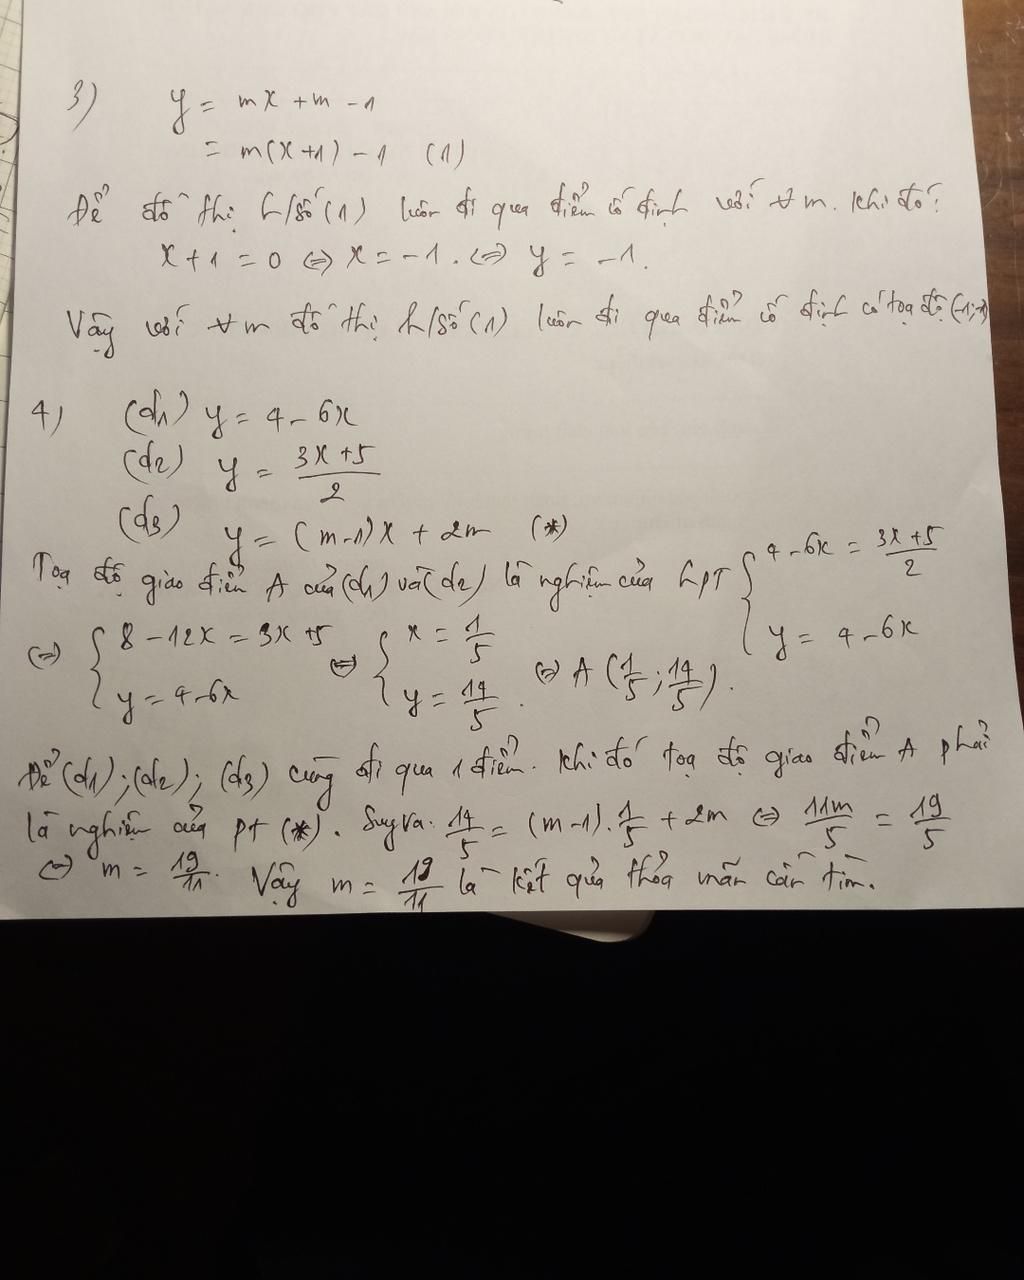 3) y = mx + m - 1
= m(x+1) - 1 (1)
Để đồ thị h/số (1) luôn đi qua điểm cố định với ∀ m. Khi đó:
x + 1 = 0 ⇔ x = -1. ⇔ y = -1.
Vậy với ∀ m đồ thị h/số (1) luôn đi qua điểm cố định có toạ độ (-1;-1)
4) (d1) y = 4 - 6x
(d2) y = \frac{3x+5}{2}
(d3) y = (m-1)x + 2m (*)
Toạ độ giao điểm A của (d1) và (d2) là nghiệm của hpt { 4 - 6x = \frac{3x+5}{2} ; y = 4 - 6x
⇔ { 8 - 12x = 3x + 5 ; y = 4 - 6x ⇔ { x = \frac{1}{5} ; y = \frac{14}{5}. ⇔ A (\frac{1}{5}; \frac{14}{5}).
Để (d1); (d2); (d3) cùng đi qua 1 điểm. Khi đó toạ độ giao điểm A phải
là nghiệm của pt (*). Suy ra: \frac{14}{5} = (m-1).\frac{1}{5} + 2m ⇔ \frac{11m}{5} = \frac{19}{5}
⇔ m = \frac{19}{11}. Vậy m = \frac{19}{11} là kết quả thỏa mãn cần tìm.